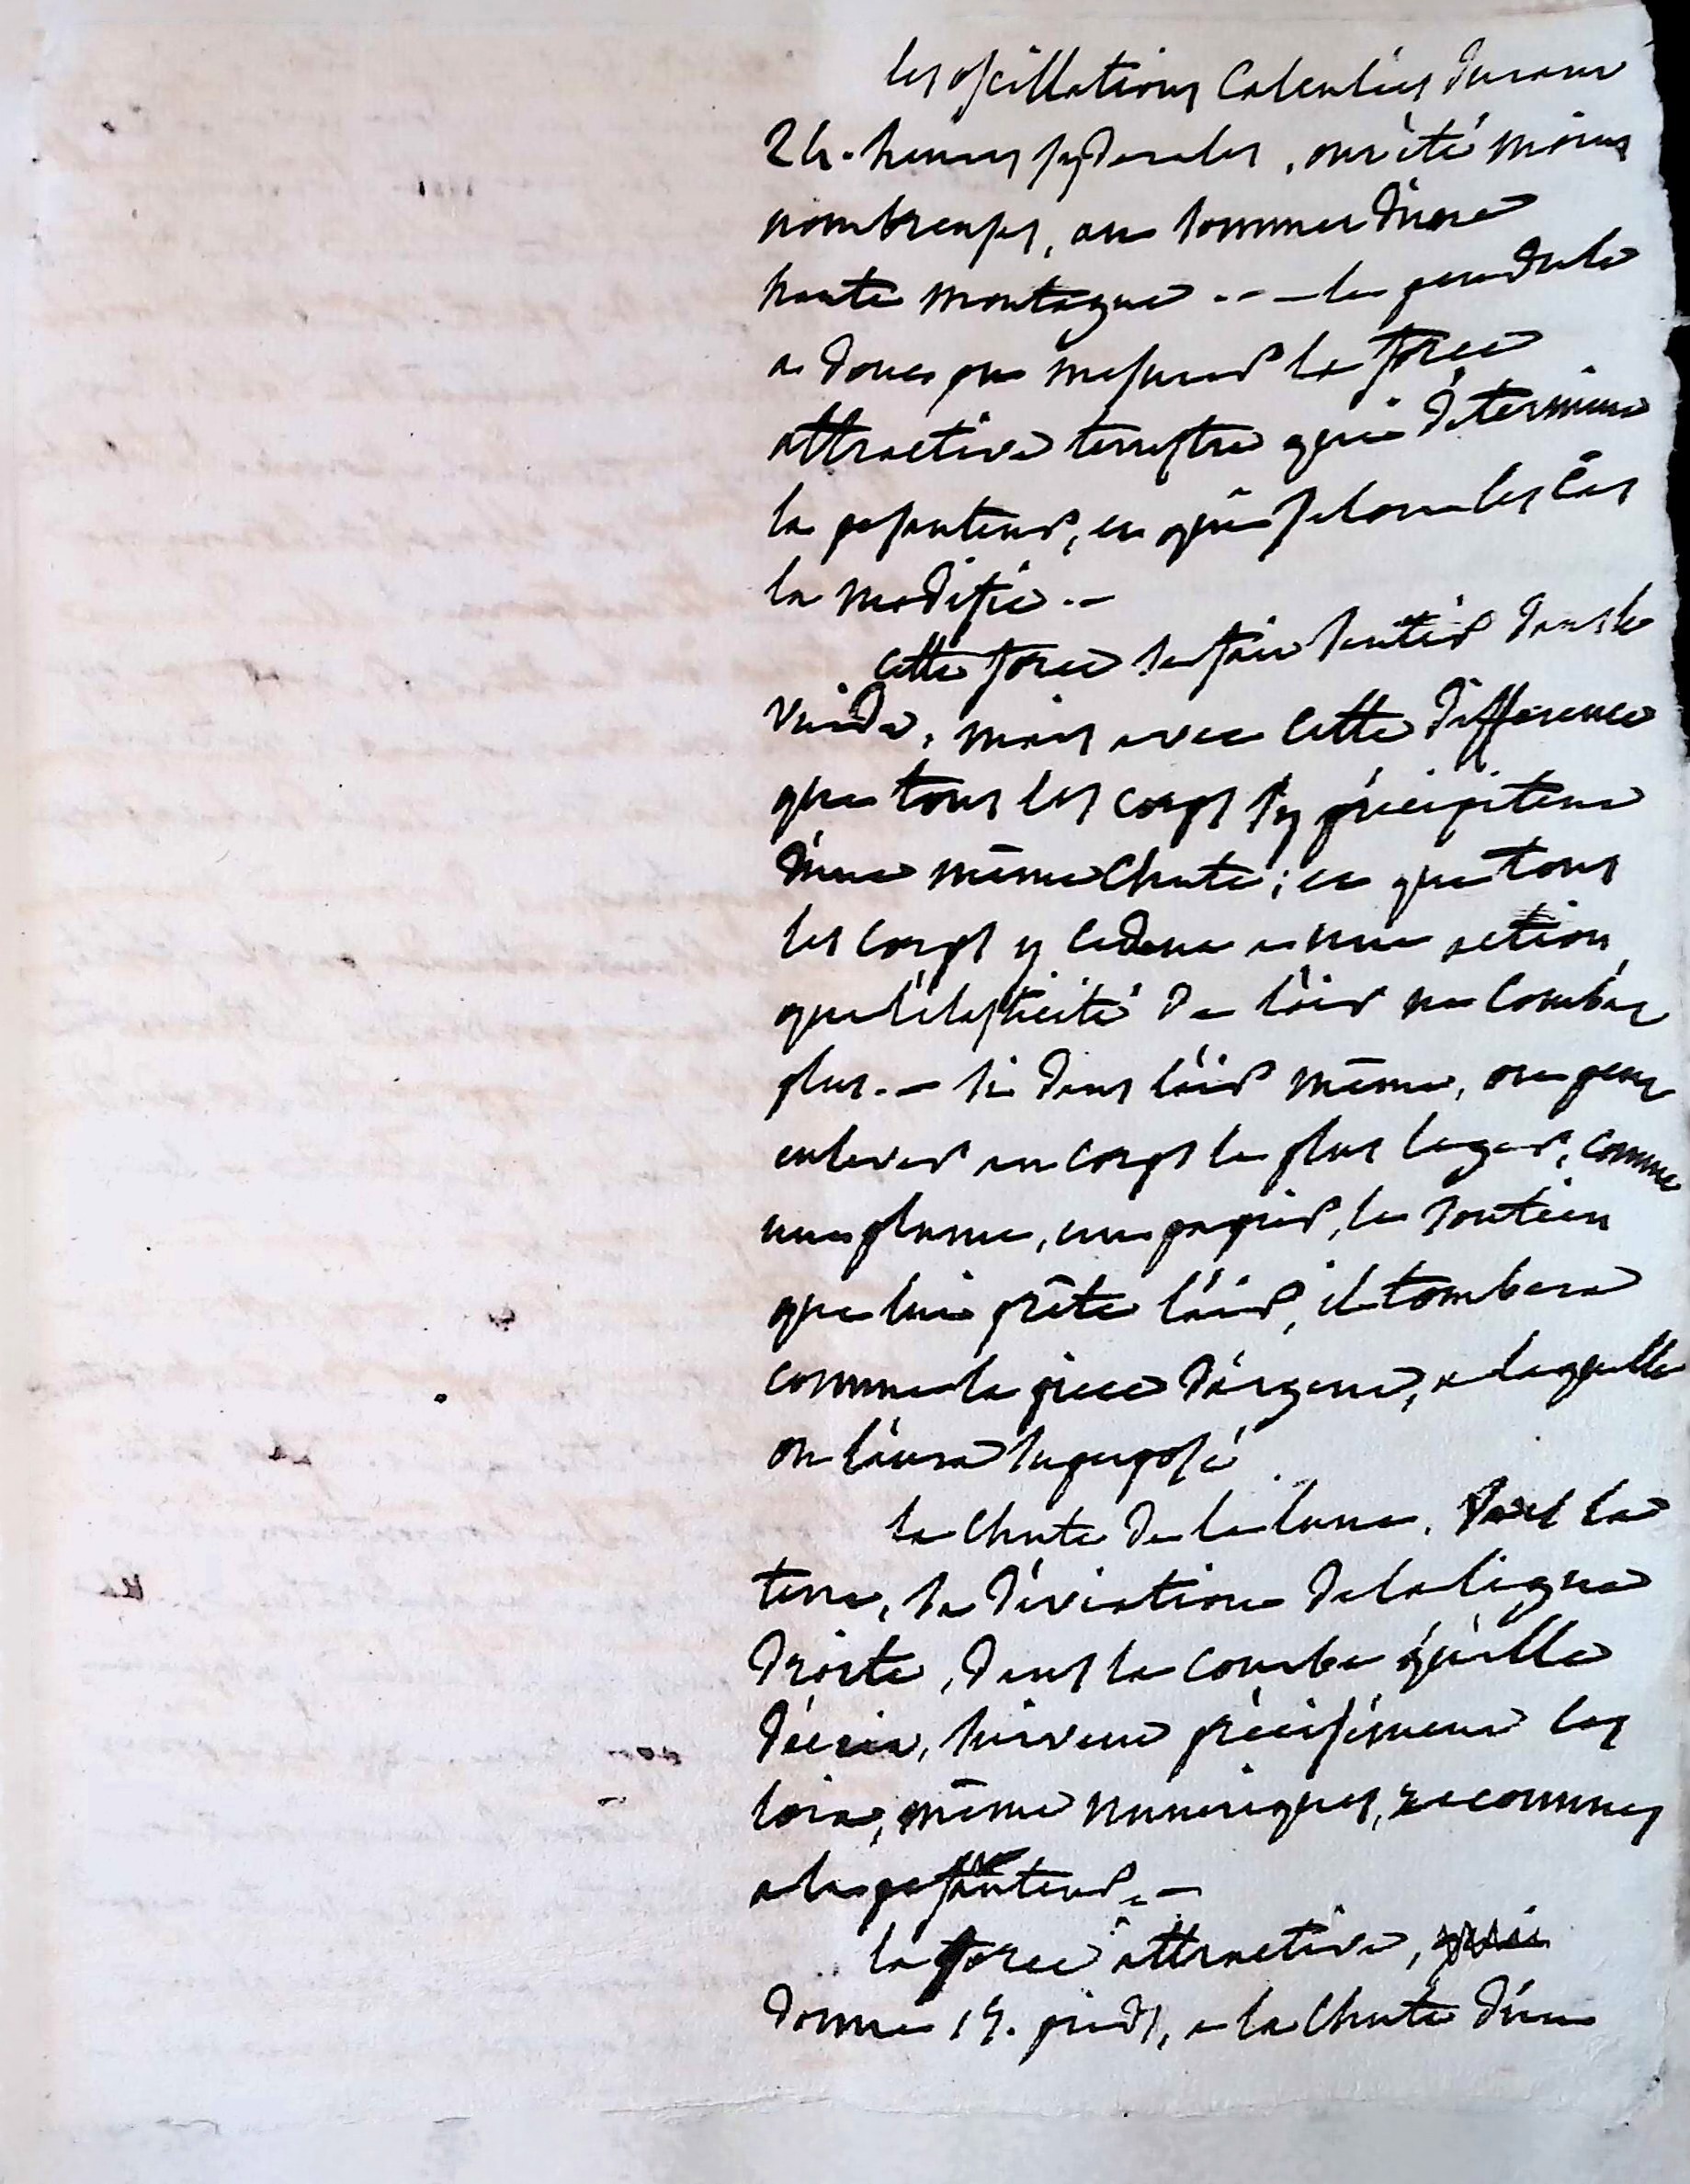 les oscillations Calculées durant
24. heures syderales, ont été moins
nombreuses, au sommet d'une
haute montagne .. — le pendule
a donc pu mesurer la force
attractive terrestre qui détermine
la pesanteur, et qui selon les cas
la modifie. —
cette force se fait sentir dans le
vuide, mais avec cette difference
que tous les corps s'y précipitent
d'une même chute; et que tous
les corps y cedent a une action
que l'élasticité de l'air ne combat
plus. — si dans l'air même, on peut
enlever au corps le plus leger, comme
une plume, un papier, le soutien
que lui prête l'air, il tombera
comme la piece d'argent, a laquelle
on l'aura superposé.
la chute de la lune, vers la
terre, sa déviation de la ligne
droite, dans la courbe qu'elle
décrit, suivent précisément les
loix, même numeriques, reconnues
a la pesanteur. —
la force attractive, qui
donne 15. pieds, a la chute d'un